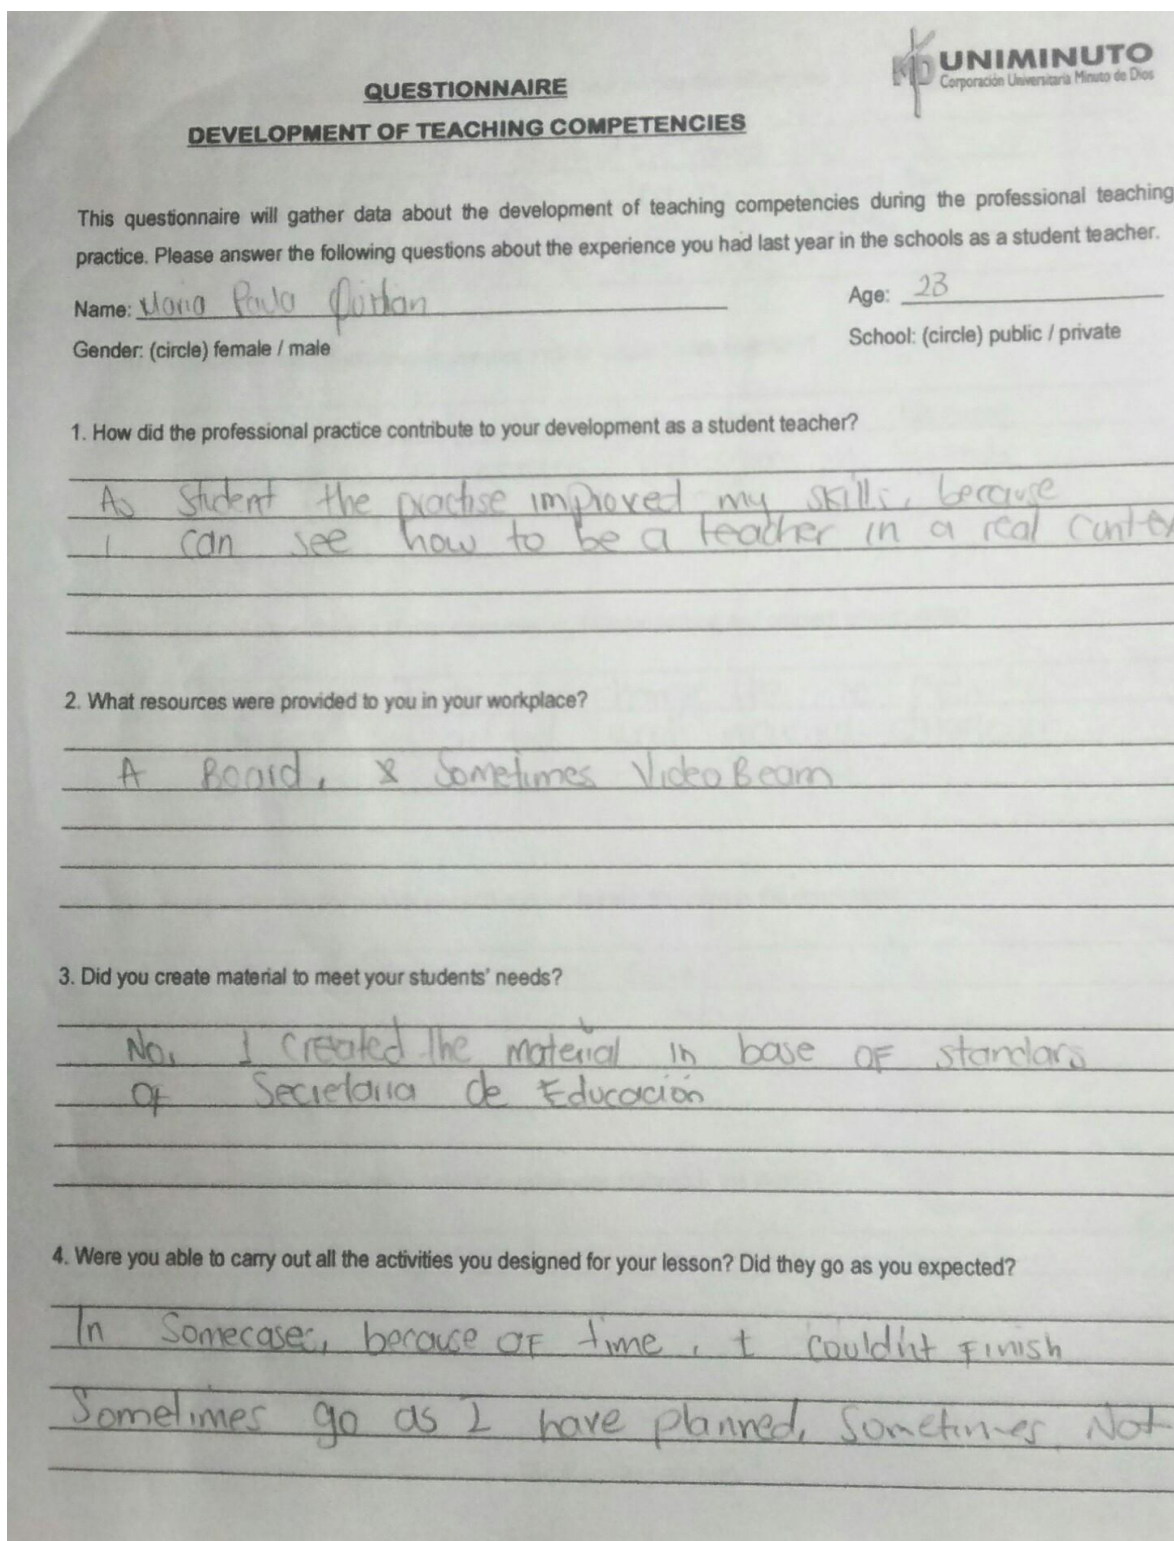 UNIMINUTO
Corporación Universitaria Minuto de Dios
QUESTIONNAIRE
DEVELOPMENT OF TEACHING COMPETENCIES
This questionnaire will gather data about the development of teaching competencies during the professional teaching
practice. Please answer the following questions about the experience you had last year in the schools as a student teacher.
Name: Maria Paula
Age: 23
Gender: (circle) female / male
School: (circle) public / private
1. How did the professional practice contribute to your development as a student teacher?
As student the practise improved my skills, because
I can see how to be a teacher in a real contex
2. What resources were provided to you in your workplace?
A Board, & Sometimes VideoBeam
3. Did you create material to meet your students' needs?
No, I created the material in base OF standars
OF Secretaria de Educación
4. Were you able to carry out all the activities you designed for your lesson? Did they go as you expected?
In Somecases, because OF time, I couldn't Finish
Sometimes go as I have planned, Sometimes Not